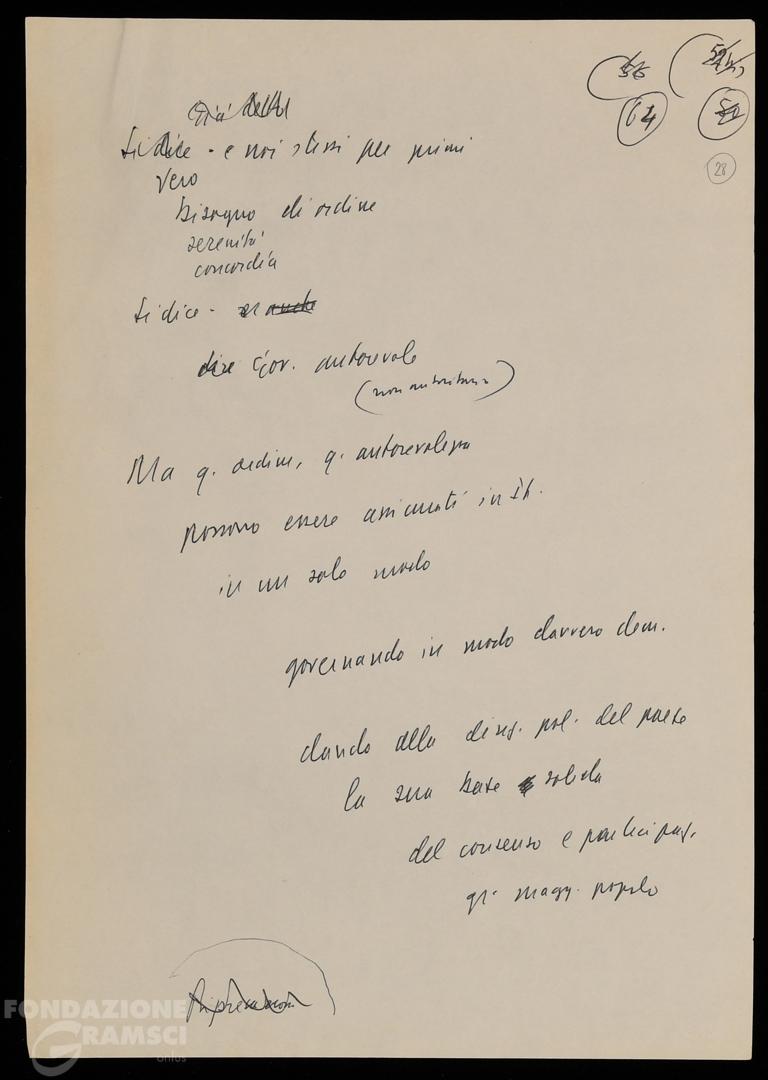 56
64
28
Già detto
Si dice - e noi stessi per primi
Vero
bisogno di ordine
serenità
concordia
Si dice - anche
dire Gov. autorevole
(non autoritario)
Ma q. ordine, q. autorevolezza
possono essere assicurati in It.
in un solo modo
governando in modo davvero dem.
dando alla direz. pol. del paese
la sua base solida
del consenso e partecipaz.
magg. popolo
FONDAZIONE
GRAMSCI
onlus